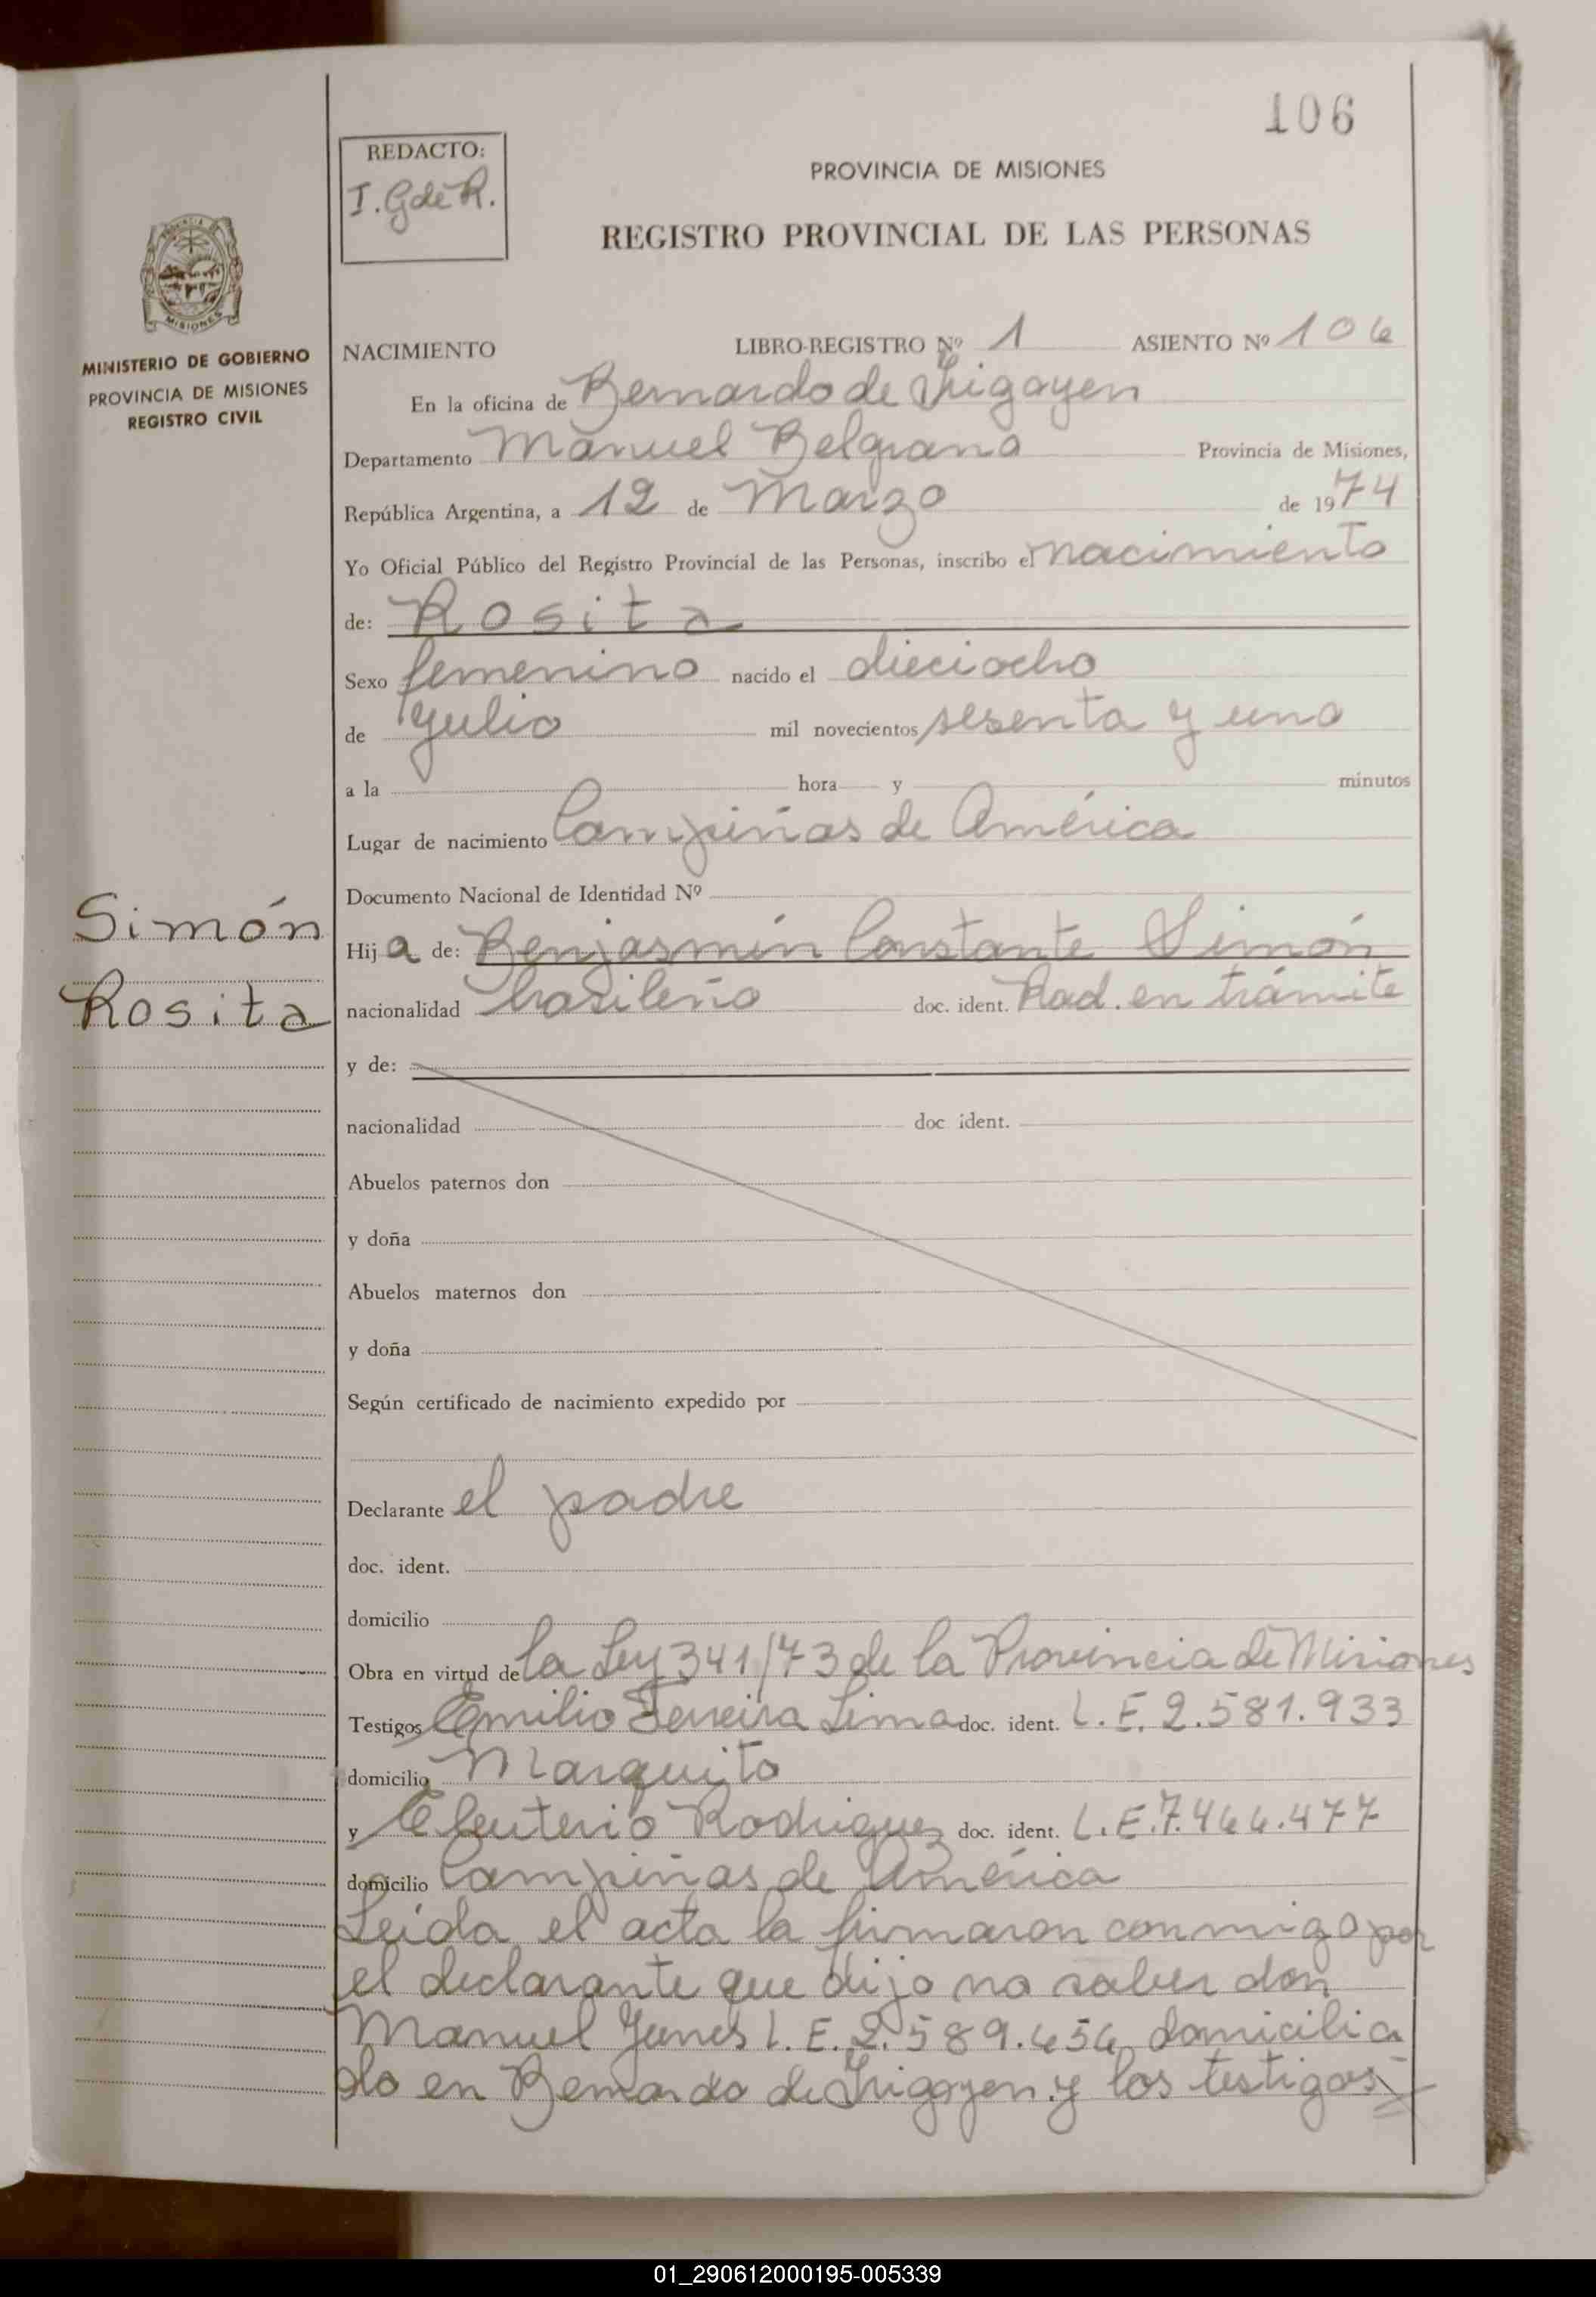 106
REDACTO:
I. G de R.
PROVINCIA DE MISIONES
REGISTRO PROVINCIAL DE LAS PERSONAS
MISIONES
MINISTERIO DE GOBIERNO
PROVINCIA DE MISIONES
REGISTRO CIVIL
NACIMIENTO LIBRO-REGISTRO Nº 1 ASIENTO Nº 106
En la oficina de Bernardo de Irigoyen
Departamento Manuel Belgrano Provincia de Misiones,
República Argentina, a 12 de Marzo de 1974
Yo Oficial Público del Registro Provincial de las Personas, inscribo el nacimiento
de: Rosita
Sexo femenino nacido el dieciocho
de julio mil novecientos sesenta y uno
a la hora y minutos
Lugar de nacimiento Campiñas de América
Documento Nacional de Identidad Nº
Simón
Rosita
Hija de: Benjasmín Constante Simón
nacionalidad brasileño doc. ident. Rad. en trámite
y de:
nacionalidad doc ident.
Abuelos paternos don
y doña
Abuelos maternos don
y doña
Según certificado de nacimiento expedido por
Declarante el padre
doc. ident.
domicilio
Obra en virtud de la Ley 341/73 de la Provincia de Misiones
Testigos Emilio Ferreira Lima doc. ident. L. E. 2.581.933
domicilio Marquito
y Eleuterio Rodriguez doc. ident. L. E. 7.466.477
domicilio Campiñas de América
Leída el acta la firmaron conmigo por
el declarante que dijo no saber don
Manuel L. E. 2.589.656 domicilia
do en Bernardo de Irigoyen y los testigos
01_290612000195-005339